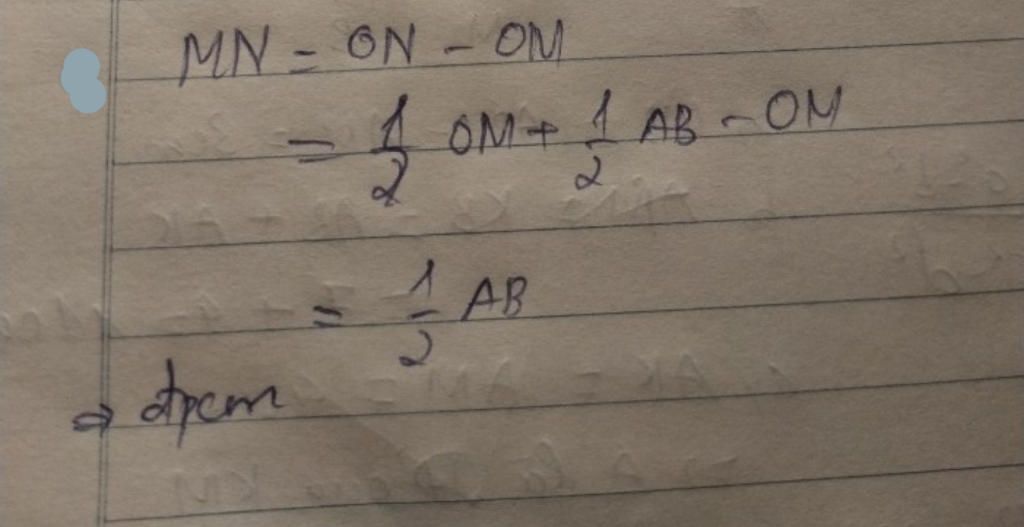 MN = ON - OM
= 1/2 OM + 1/2 AB - OM
= 1/2 AB
⇒ đpcm